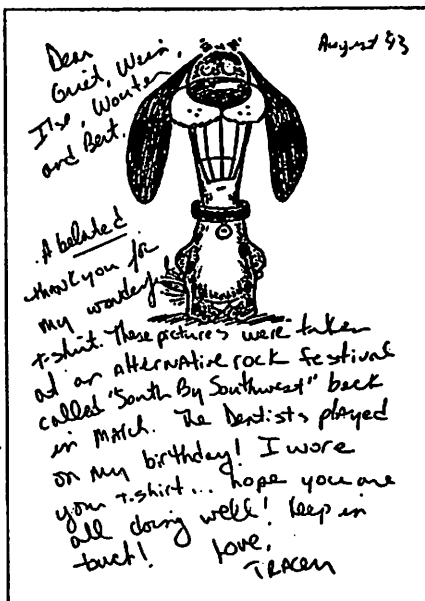 August 93
Dear
Griet, Wein,
Ilse, Wouter
and Bert.
A belated
thank you for
my wonderful
t-shirt. These pictures were taken
at an Alternative rock festival
called "South By Southwest" back
in March. The Dentists played
on my birthday! I wore
your t-shirt... hope you are
all doing well! keep in
touch! love,
TRACEY